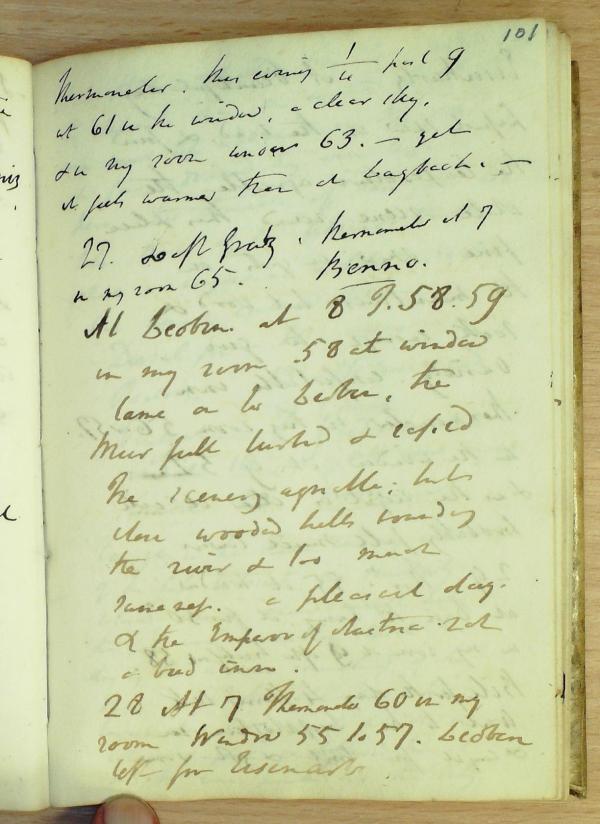 101
Thermometer. this evening 1/2 past 9
at 61 in the window, a clear sky,
& in my room under 63. — yet
it feels warmer than at Laybach. —
27. Left Gratz. Thermometer at 7
in my room 65. Benno.
At Leoben at 8 9.58.59
in my room .58 at window
came on to Leoben, the
Muir full turbid & rapid
The scenery agreeable; but
close wooded hills bounding
the river & too much
sameness. a pleasant day.
& the Emperor of Austria not
a bad inn.
28 At 7 Thermometer 60 in my
room Window 55 to 57. Leoben
left for Eisenartz